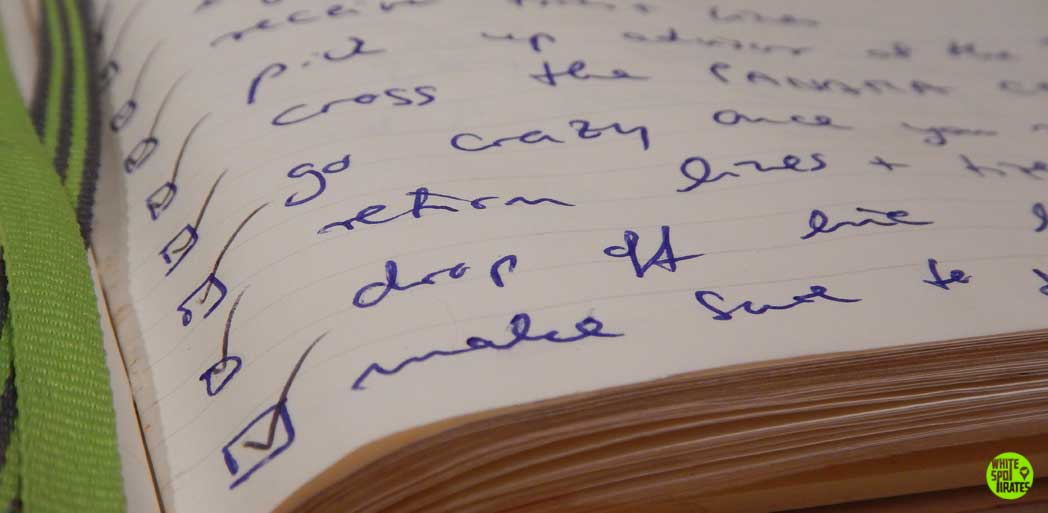 receive lines
pick up advisor at the
cross the PANAMA
go crazy once you
return lines +
drop off line
make sure to
WHITE
SPOT
PIRATES